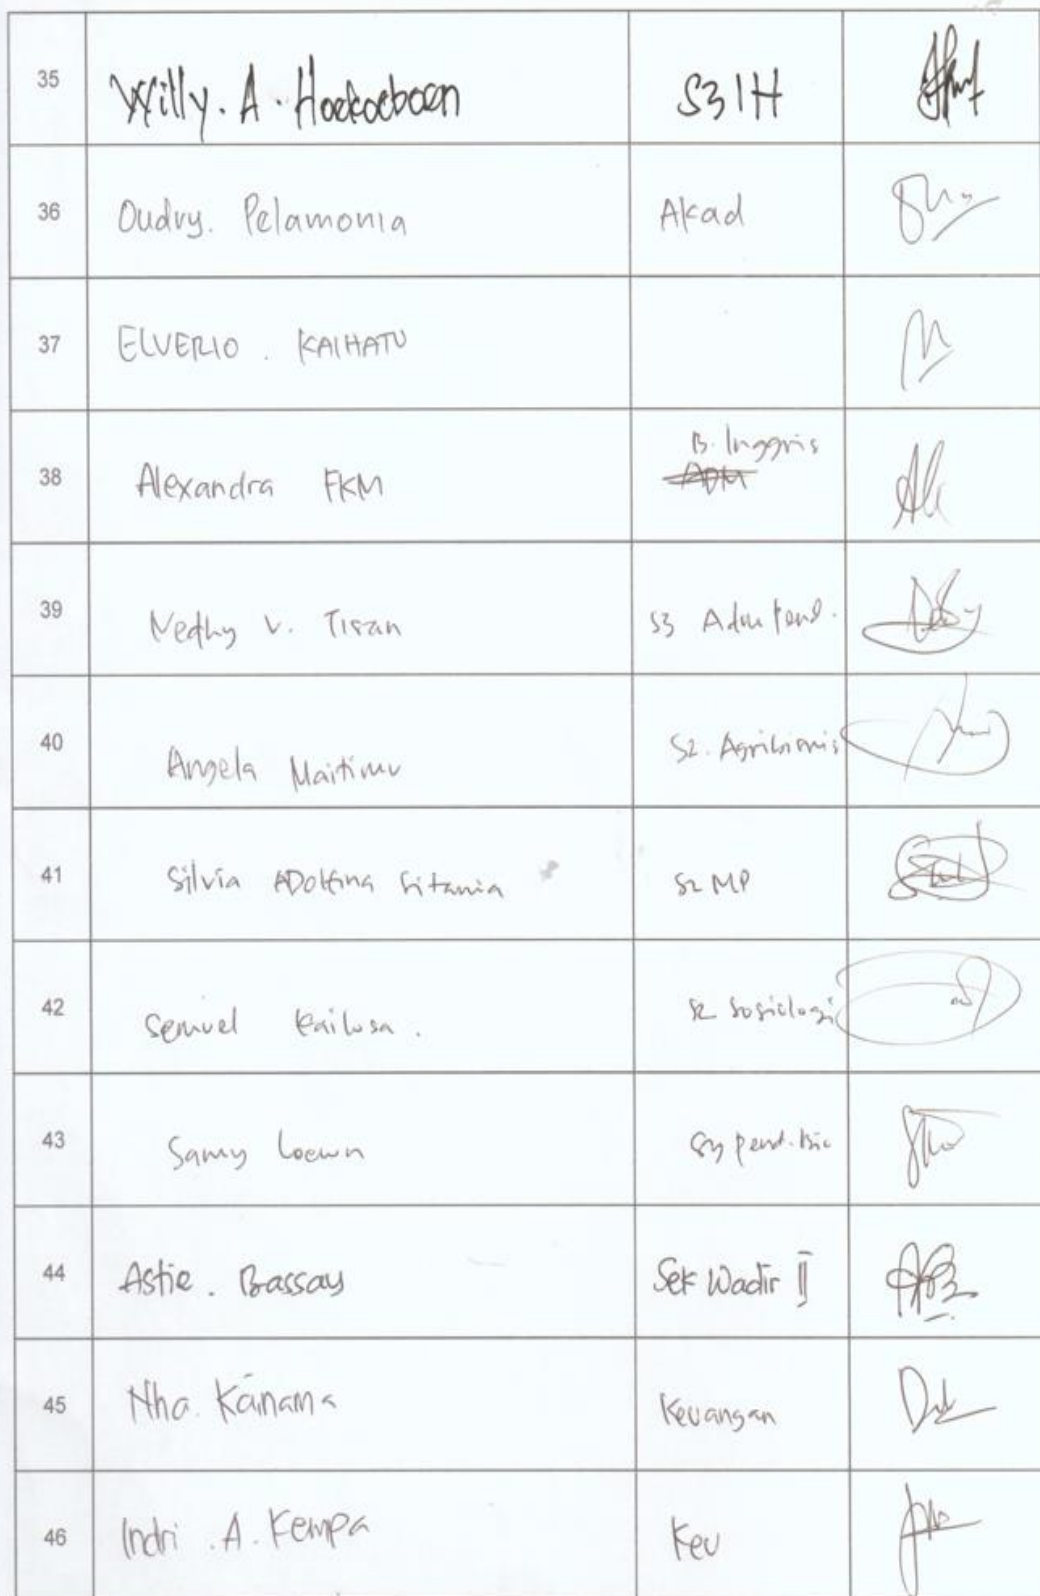 35 Willy. A. Hoekoeboen S3 IH
36 Oudry. Pelamonia Akad
37 ELVERIO. KAIHATU
38 Alexandra FKM B. Inggris
39 Nedhy V. Tisan S3 Adm Pend.
40 Angela Maitimu S2. Agribisnis
41 Silvia ADOLfina Sitania S2 MP
42 Semuel Kailusa. S2 Sosiologi
43 Samy Pend. Bio
44 Astie. Bassay Sek Wadir II
45 Nha. Kainama Keuangan
46 Indri. A. Kempa Keu